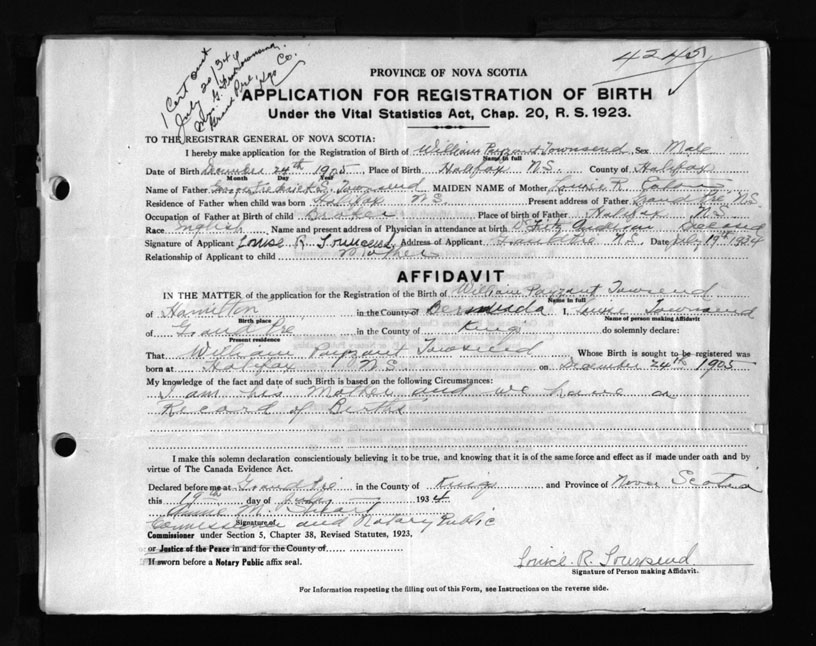 1 Cert out
July 20/34
Grand Pre, Kgs Co.
4245
PROVINCE OF NOVA SCOTIA
APPLICATION FOR REGISTRATION OF BIRTH
Under the Vital Statistics Act, Chap. 20, R. S. 1923.
TO THE REGISTRAR GENERAL OF NOVA SCOTIA:
I hereby make application for the Registration of Birth of William Payzant Townsend Sex Male
Name in full
Date of Birth December 24th 1905 Place of Birth Halifax N.S. County of Halifax
Month Day Year
Name of Father Townsend MAIDEN NAME of Mother Louise R.
Residence of Father when child was born Halifax NS Present address of Father Grand Pre N.S.
Occupation of Father at Birth of child Broker Place of birth of Father Halifax NS
Race English Name and present address of Physician in attendance at birth Dr Anderson
Signature of Applicant Louise R. Townsend Address of Applicant Grand Pre N.S. Date July 19th 1934
Relationship of Applicant to child Mother
AFFIDAVIT
IN THE MATTER of the application for the Registration of the Birth of William Payzant Townsend
Name in full
of Hamilton in the County of Bermuda I, Louise Townsend
Birth place Name of person making Affidavit
of Grand Pre in the County of Kings do solemnly declare:
Present residence
That William Payzant Townsend Whose Birth is sought to be registered was
born at Halifax N.S. on December 24th 1905
My knowledge of the fact and date of such Birth is based on the following Circumstances:
I am his Mother and we have a
Record of Births
I make this solemn declaration conscientiously believing it to be true, and knowing that it is of the same force and effect as if made under oath and by
virtue of The Canada Evidence Act.
Declared before me at Grand Pre in the County of Kings and Province of Nova Scotia
this 19th day of July 1934
Annie M. Stuart
Signature of
Commissioner and Notary Public
Commissioner under Section 5, Chapter 38, Revised Statutes, 1923,
or Justice of the Peace in and for the County of
If sworn before a Notary Public affix seal.
Louise R. Townsend
Signature of Person making Affidavit.
For Information respecting the filling out of this Form, see Instructions on the reverse side.